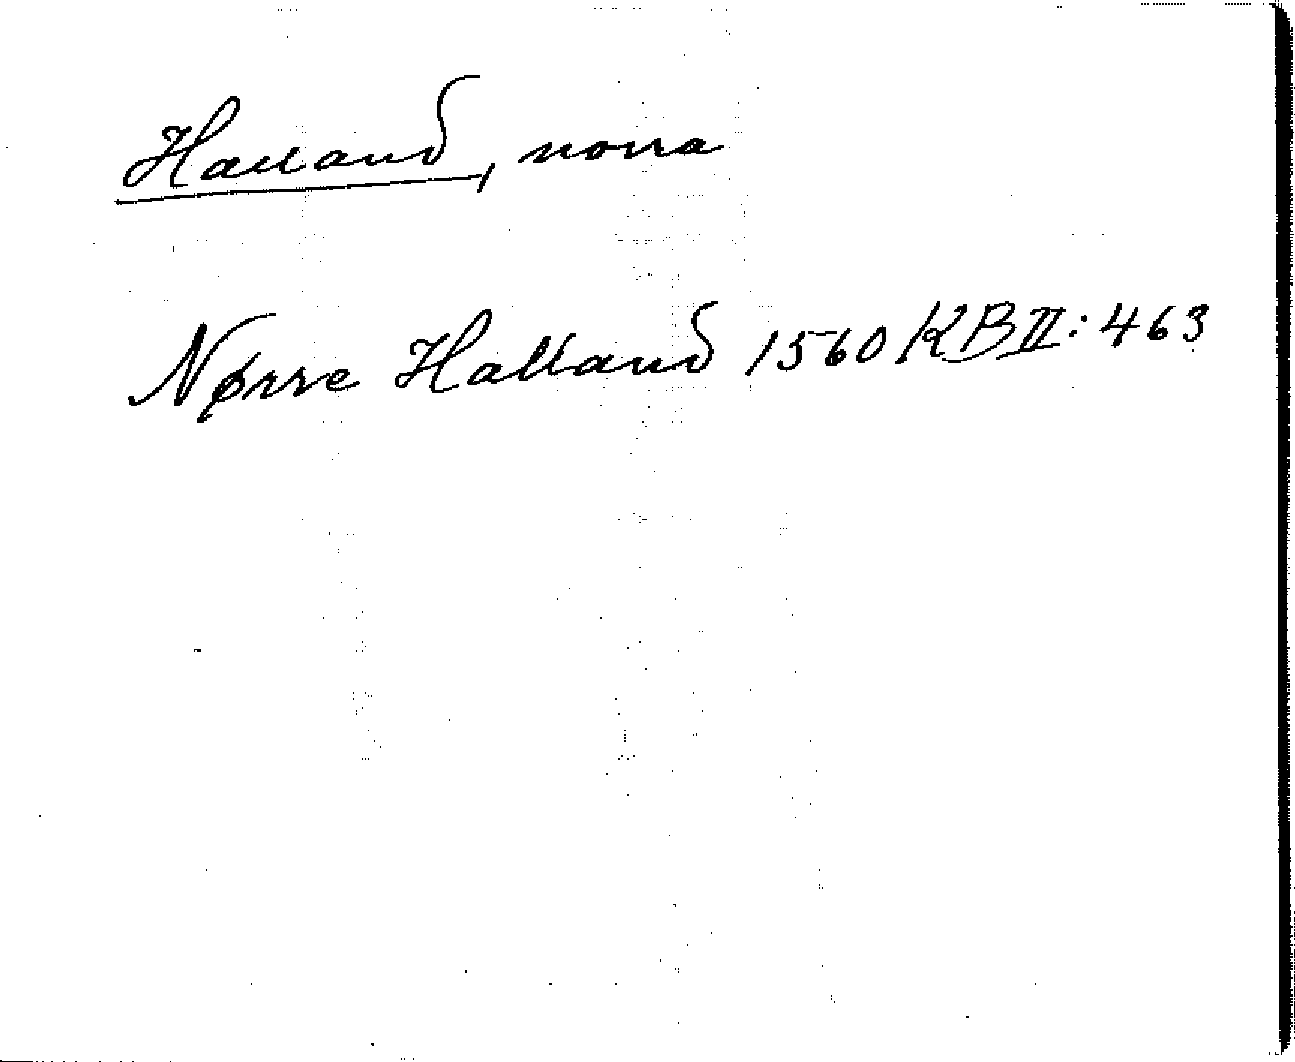 Halland, norra
Nørre Halland 1560 KB II: 463